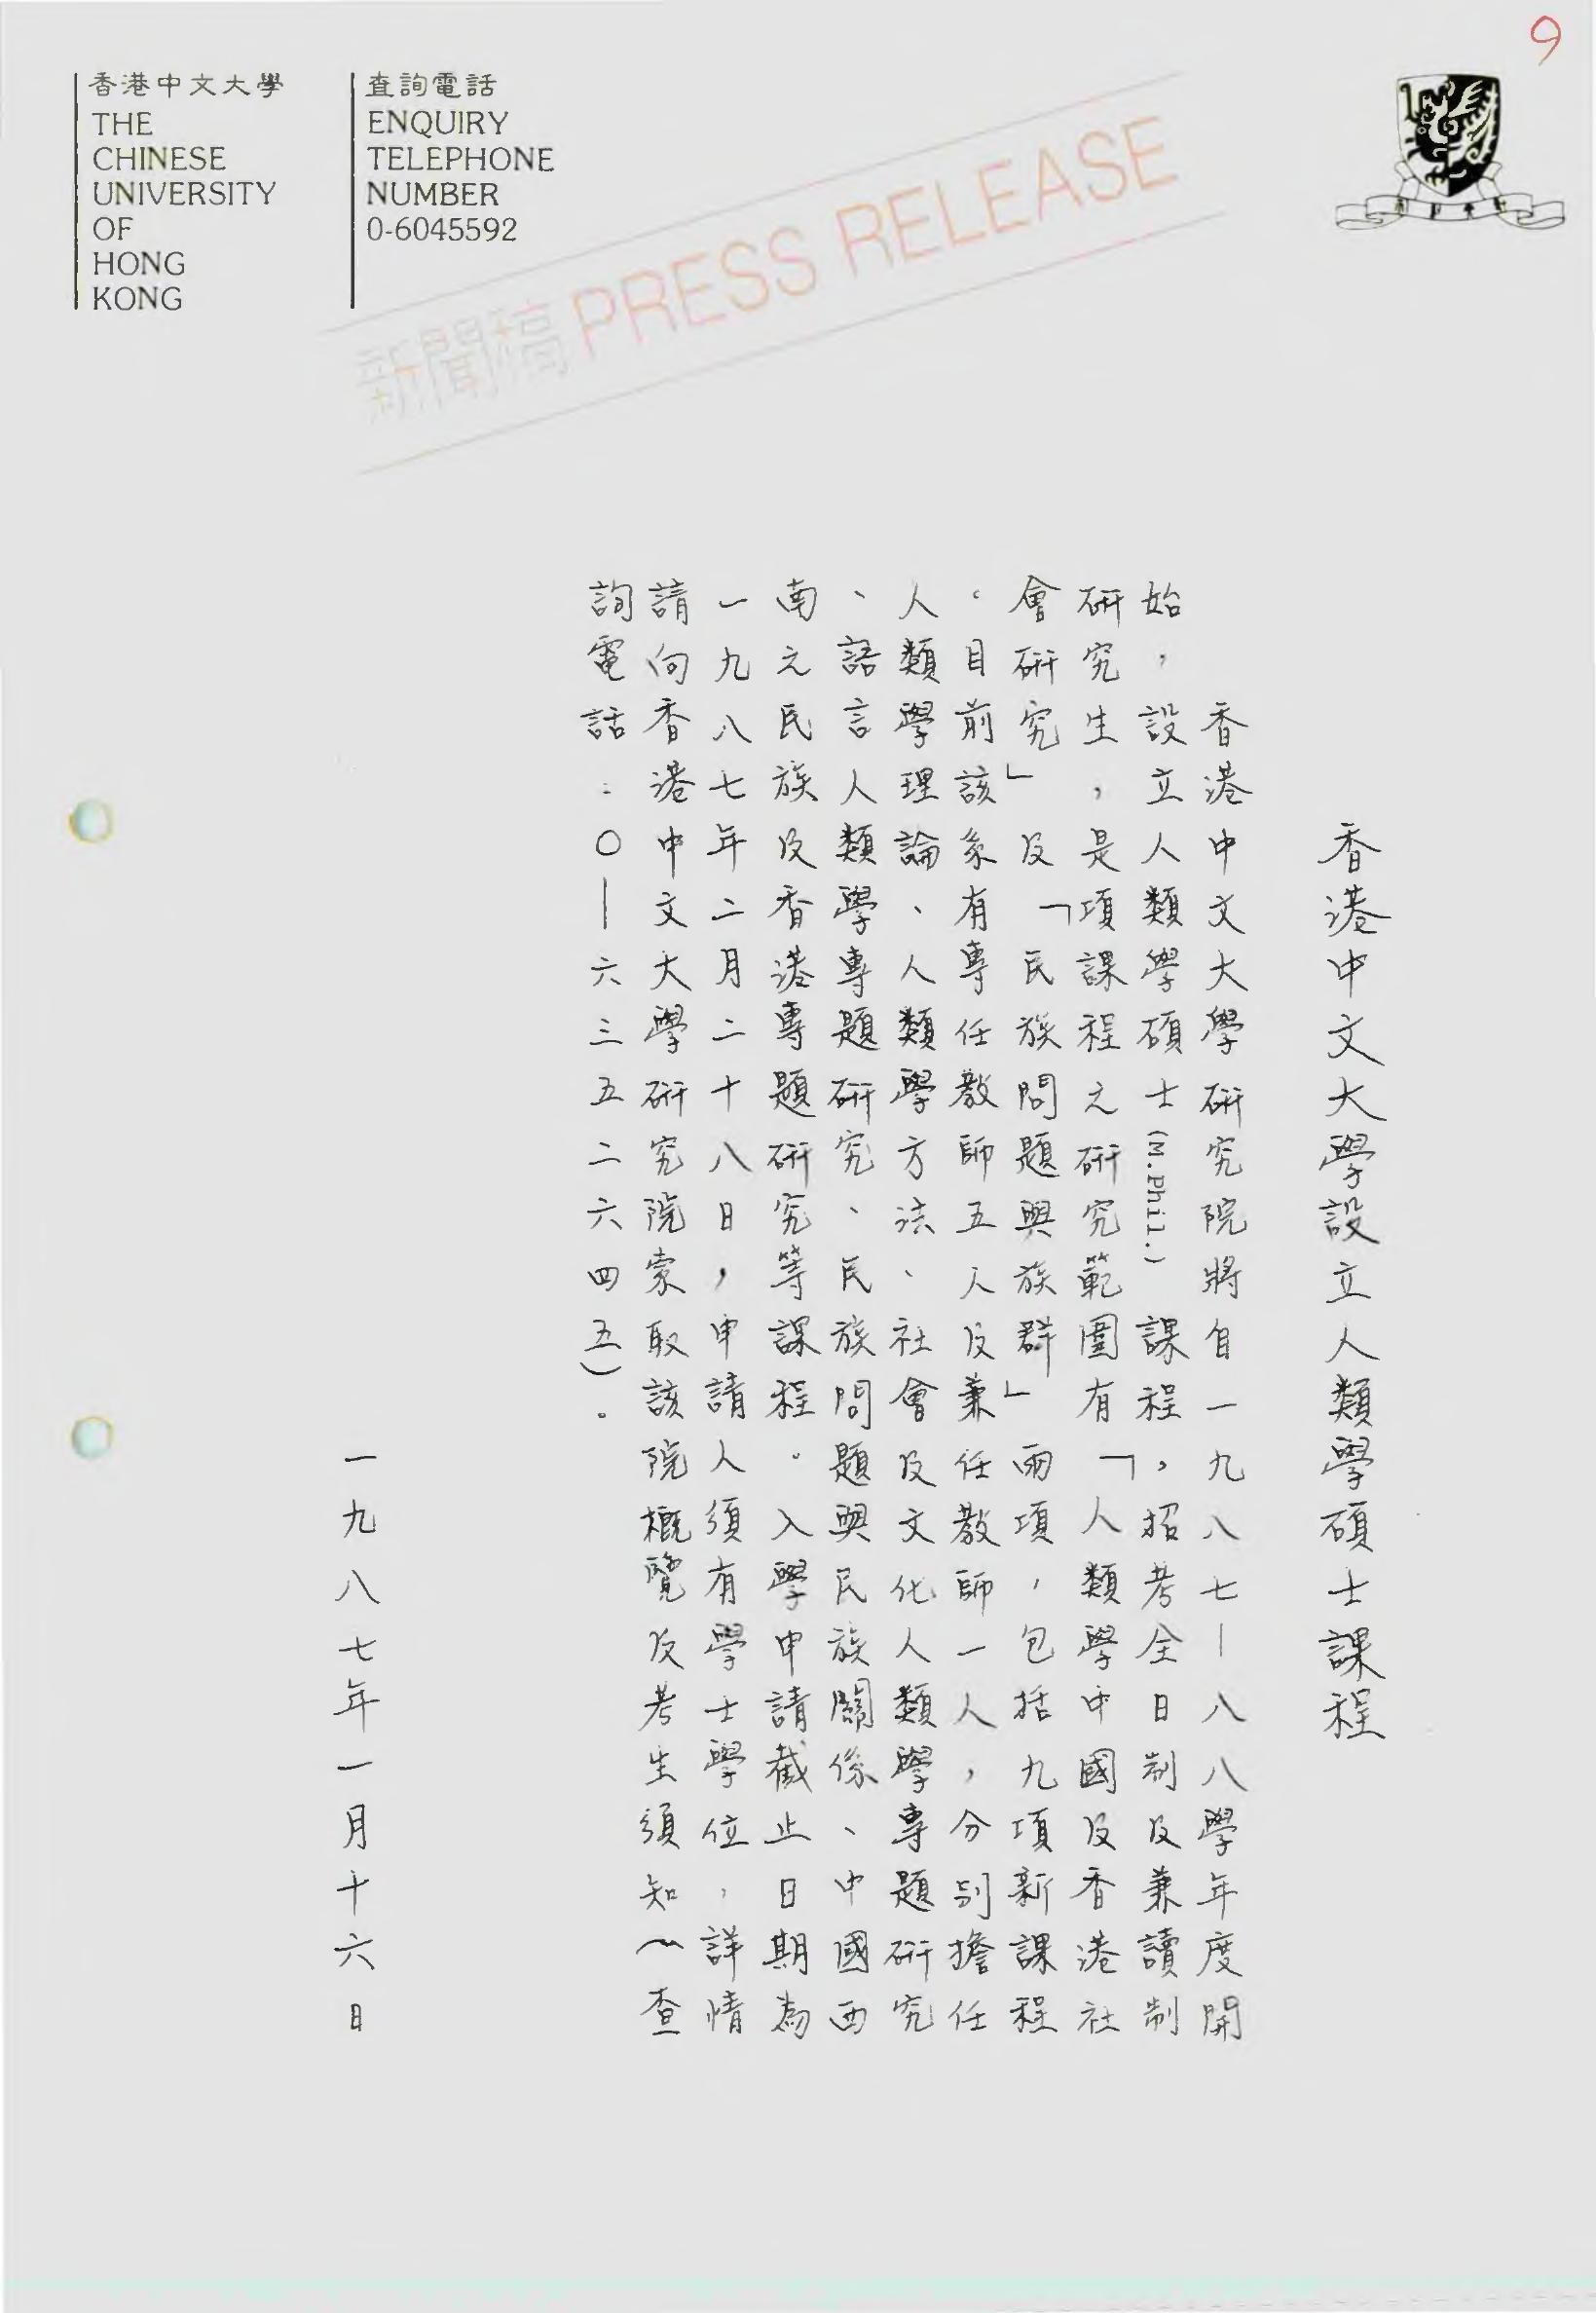 9
香港中文大學
THE
CHINESE
UNIVERSITY
OF
HONG
KONG
查詢電話
ENQUIRY
TELEPHONE
NUMBER
0-6045592
新聞稿 PRESS RELEASE
香港中文大學設立人類學碩士課程
香港中文大學研究院將自一九八七—八八學年度開
始，設立人類學碩士(M.Phil.)課程，招考全日制及兼讀制
研究生，是項課程之研究範圍有「人類學中國及香港社
會研究」及「民族問題與族群」兩項，包括九項新課程
。目前該系有專任教師五人及兼任教師一人，分別擔任
人類學理論、人類學方法、社會及文化人類學專題研究
、語言人類學專題研究、民族問題與民族關係、中國西
南之民族及香港專題研究等課程。入學申請截止日期為
一九八七年二月二十八日，申請人須有學士學位，詳情
請向香港中文大學研究院索取該院概覽及考生須知（查
詢電話：〇—六三五二六四五）。
一九八七年一月十六日